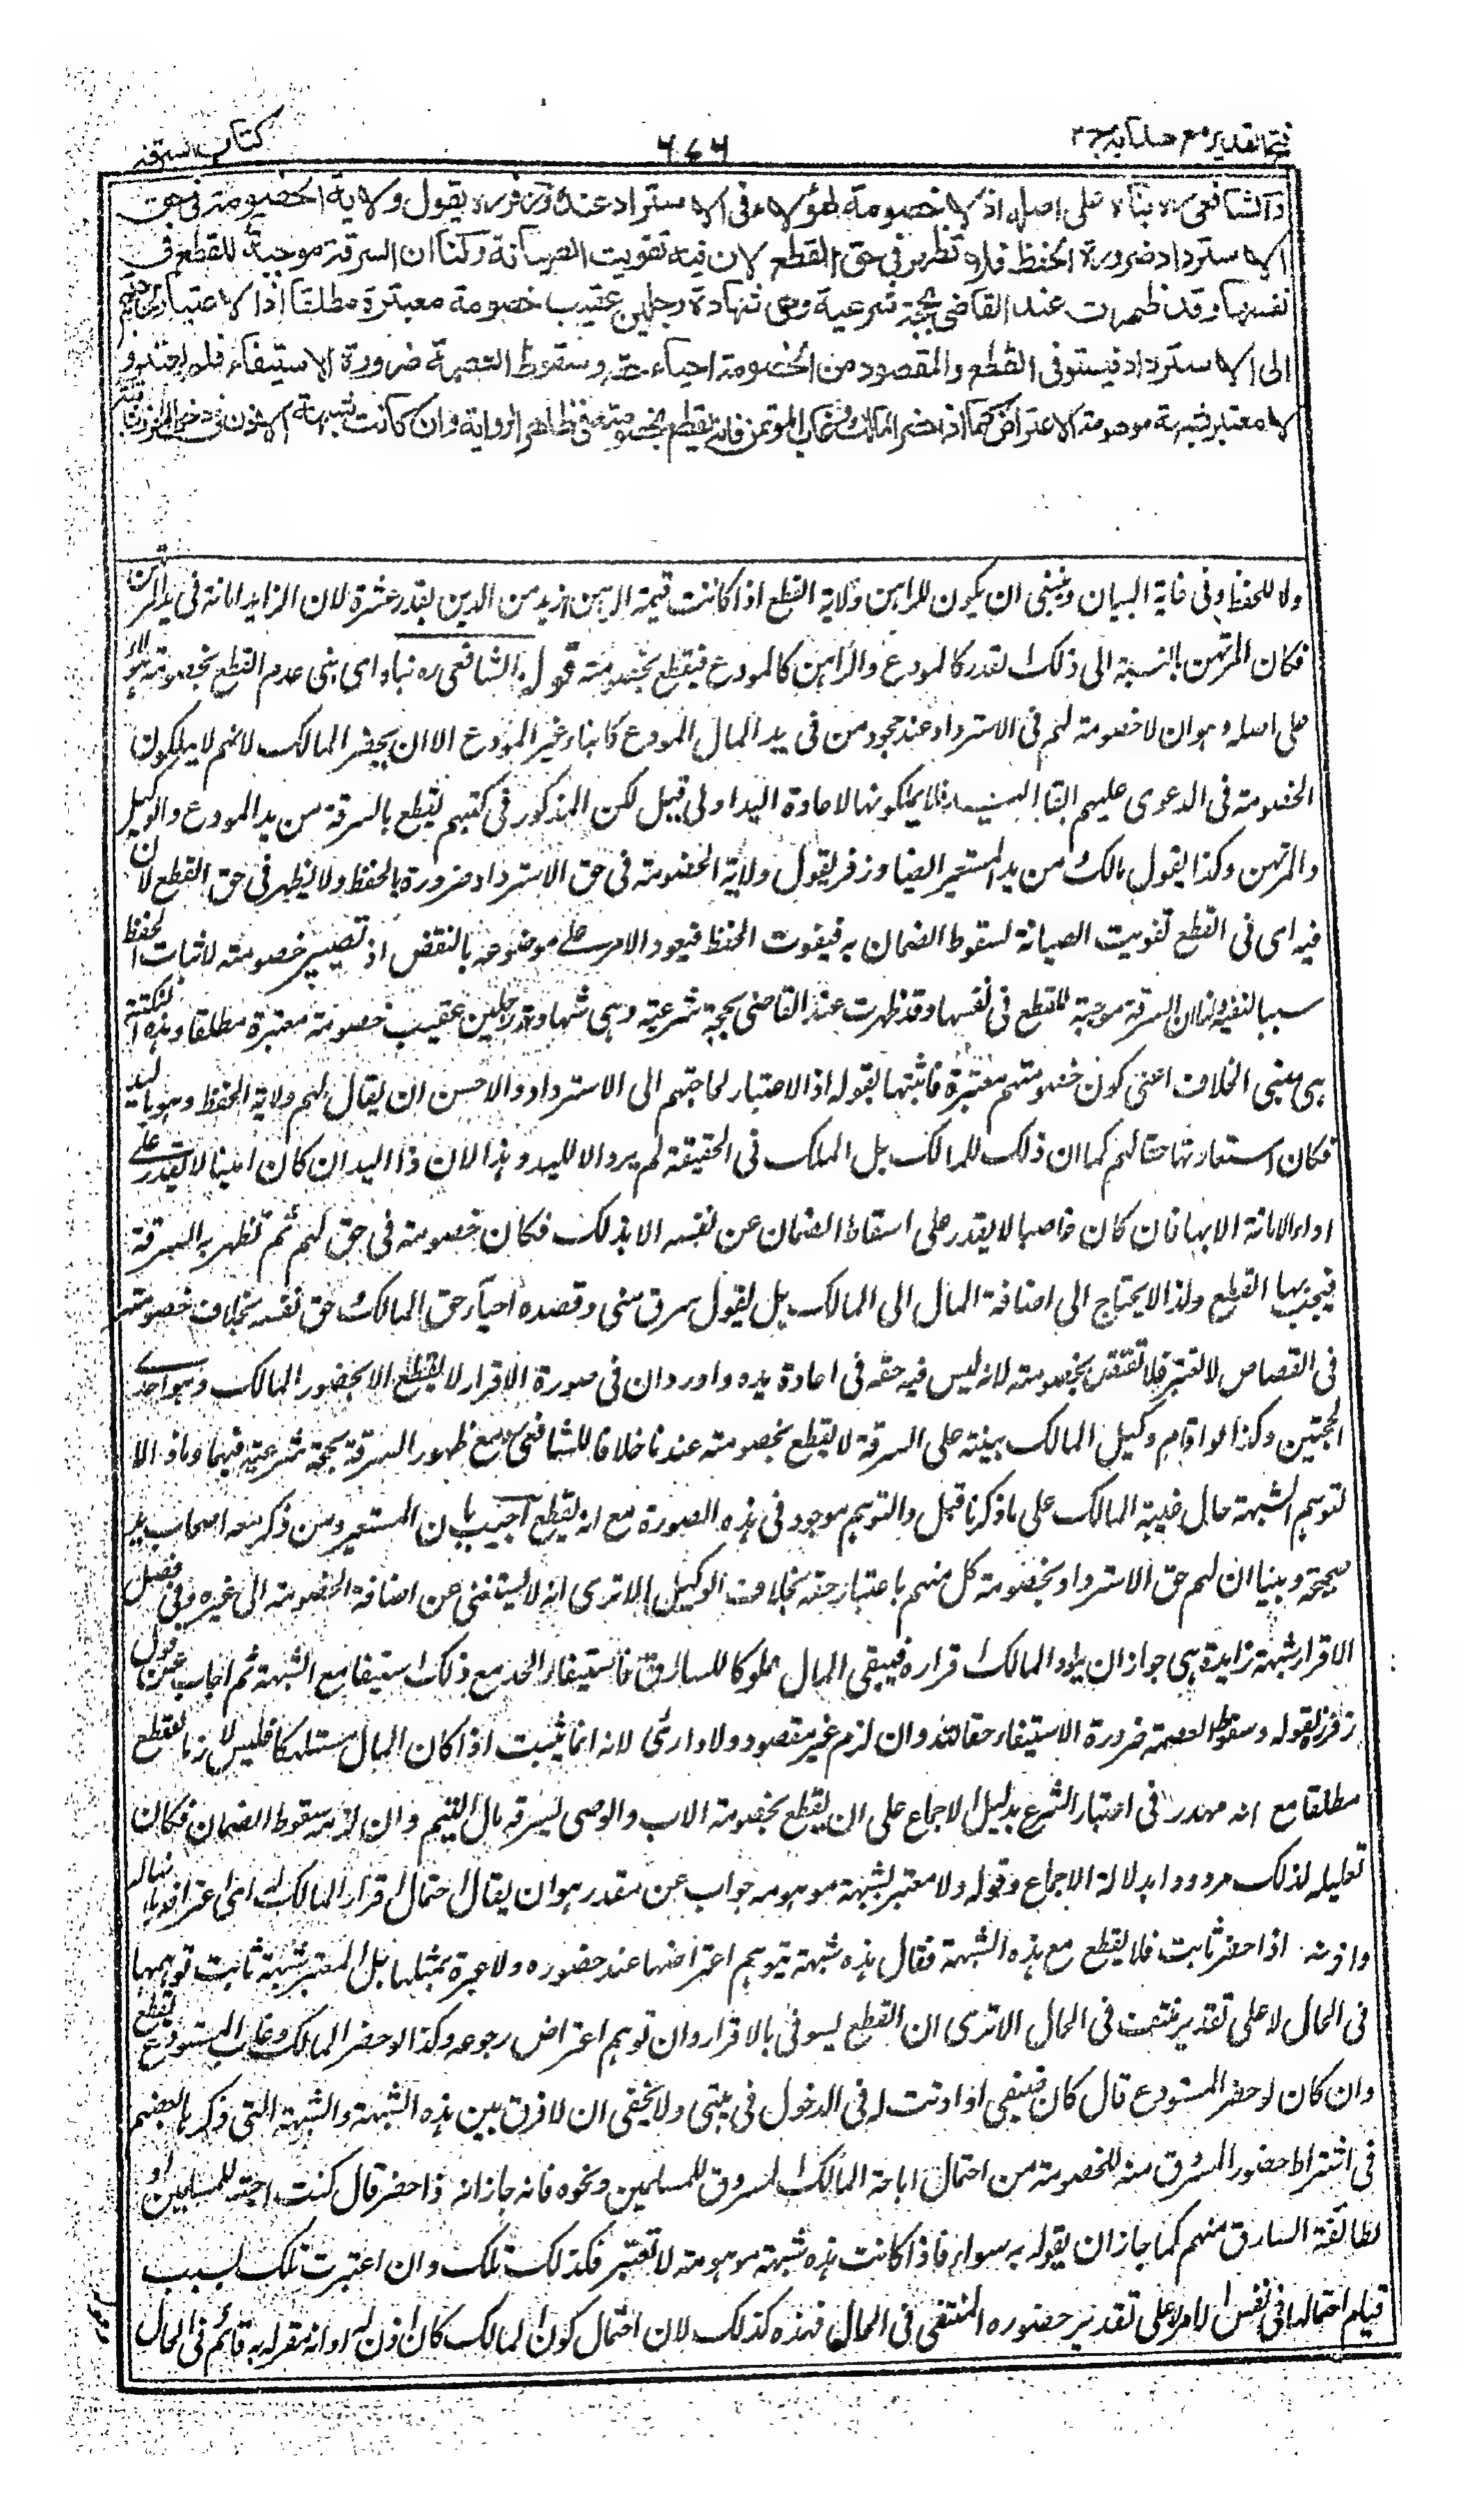 فتح القدير مع هدايه ج ٢
٦٧٦
كتاب السرقة
والشافعي ره بناه على اصله اذ لا خصومة لهؤلاء في الاسترداد عنده وزفر ره يقول ولاية الخصومة في حق
الاسترداد ضرورة الحفظ فلا تظهر في حق القطع لان فيه تفويت الصيانة ولنا ان السرقة موجبة للقطع في
نفسها وقد ظهرت عند القاضي بحجة شرعية وهي شهادة رجلين عقيب خصومة معتبرة مطلقا اذ الاعتبار لحاجتهم
الى الاسترداد فيستوفى القطع والمقصود من الخصومة احياء حقه وسقوط العصمة ضرورة الاستيفاء فلم يعتبر و
لا معتبر بشبهة موهومة الاعتراض كما اذا حضر المالك وغاب المؤتمن فانه يقطع بخصومته في ظاهر الرواية وان كانت شبهة الاذن في دخول الحرز ثابتة
ولا للحفظ وفي غاية البيان وينبغي ان يكون للراهن ولاية القطع اذا كانت قيمة الرهن ازيد من الدين بقدر عشرة لان الزايد امانة في يد المرتهن
فكان المرتهن بالنسبة الى ذلك القدر كالمودع والراهن كالمودع فيقطع بخصومته قوله الشافعي ره بناه اى بنى عدم القطع بخصومة هؤلاء
على اصله وهو ان لا خصومة لهم في الاسترداد عند جحود من في يده المال المودع كابناء غير المودع الا ان يحضر المالك لانهم لا يملكون
الخصومة في الدعوى عليهم ابقاء اليد فلا يملكونها لاعادة اليد اولى قيل لكن المذكور في كتبهم يقطع بالسرقة من يد المودع والوكيل
والمرتهن وكذا يقول مالك من يد المستعير ايضا وزفر يقول ولاية الخصومة في حق الاسترداد ضرورة الحفظ ولا يظهر في حق القطع لان
فيه اى في القطع تفويت الصيانة لسقوط الضمان به فيفوت الحفظ فيعود الامر على موضوعه بالنقض اذ تصير خصومته لاثبات الحفظ
سببا لنفيه ولنا ان السرقة موجبة للقطع في نفسها وقد ظهرت عند القاضي بحجة شرعية وهي شهادة رجلين عقيب خصومة معتبرة مطلقا وهذه النكتة
هى مبنى الخلاف اعنى كون خصومتهم معتبرة فاثبتها بقوله اذ الاعتبار لحاجتهم الى الاسترداد والاحسن ان يقال لهم ولاية الحفظ وهو باليد
فكان استعادتها حقا لهم كما ان ذلك للمالك بل الملك في الحقيقة لم يرد الا لليد وهذا لان ذا اليد ان كان امينا لا يقدر على
اداء الامانة الا بها فان كان غاصبا لا يقدر على اسقاط الضمان عن نفسه الا بذلك فكان خصومة في حق لهم ثم تظهر به السرقة
فيجب بها القطع ولذا لا يحتاج الى اضافة المال الى المالك بل يقول سرق منى وقصده احياء حق المالك وحق نفسه بخلاف خصومته
في القصاص لا تعتبر فلا تقتص بخصومته لانه ليس فيه حقه في اعادة يده واورد ان في صورة الاقرار لا يقطع الا بحضور المالك وهو احدى
الحجتين وكذا لو اقام وكيل المالك بينة على السرقة لا يقطع بخصومته عندنا خلافا للشافعي مع ظهور السرقة بحجة شرعية فيهما وما ذاك الا
لتوهم الشبهة حال غيبة المالك على ما ذكرنا قبل والتوهم موجود في هذه الصورة مع انه يقطع اجيب بان المستعير ومن ذكر معه اصحاب يد
صحيحة وبينا ان لهم حق الاسترداد بخصومة كل منهم باعتبار حقه بخلاف الوكيل الا ترى انه لا يستغنى عن اضافة الخصومة الى غيره وفي فصل
الاقرار شبهة زايدة هى جواز ان يرد المالك اقراره فيبقى المال مملوكا للسارق فاستيفاء الحد مع ذلك استيفاء مع الشبهة ثم اجاب عن قول
زفر بقوله وسقوط العصمة ضرورة الاستيفاء حقا لله وان لزم غير مقصود ولا دارئ لانه انما يثبت اذا كان المال مستهلكا فليس لازما للقطع
مطلقا مع انه مهدر في اعتبار الشرع بدليل الاجماع على ان يقطع بخصومة الاب والوصى لسرقة مال اليتيم وان لزمه سقوط الضمان فكان
تعليله لذلك مردودا بدلالة الاجماع وقوله ولا معتبر بشبهة موهومة جواب عن مقدر هو ان يقال احتمال اقرار المالك له اى اعترافه بانها له
واذنه اذا حضر ثابت فلا يقطع مع هذه الشبهة فقال هذه شبهة يتوهم اعتراضها عند حضوره ولا عبرة بمثلها بل المعتبر شبهة ثابت توهمها
في الحال لا على تقدير منتف في الحال الا ترى ان القطع يستوفى بالاقرار وان توهم اعتراض رجوعه وكذا لو حضر المالك وغاب المستودع يقطع
وان كان لو حضر المستودع قال كان ضيفى او اذنت له في الدخول في بيتى ولا يخفى ان لا فرق بين هذه الشبهة والشبهة التى ذكرها بعضهم
في اشتراط حضور المسروق منه للخصومة من احتمال اباحة المالك المسروق للمسلمين ونحوه فانه جاز انه اذا حضر قال كنت ابحته للمسلمين او
لطائفة السارق منهم كما جاز ان يقوله به سواء فاذا كانت هذه شبهة موهومة لا تعتبر فكذلك تلك وان اعتبرت تلك بسبب
قيام احتمالها في نفس الامر لا على تقدير حضوره المنتفى في الحال فهذه كذلك لان احتمال كون المالك كان اذن له او انه مقر له به قائم في الحال